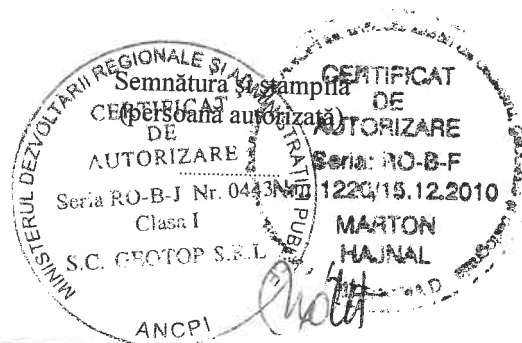 Semnătura și ștampila
(persoana autorizată)
MINISTERUL DEZVOLTĂRII REGIONALE ȘI ADMINISTRAȚIEI PUBLICE
CERTIFICAT
DE
AUTORIZARE
Seria RO-B-J Nr. 0443
Clasa I
S.C. GEOTOP S.R.L
ANCPI
CERTIFICAT
DE
AUTORIZARE
Seria: RO-B-F
Nr. 1220/15.12.2010
MARTON
HAJNAL